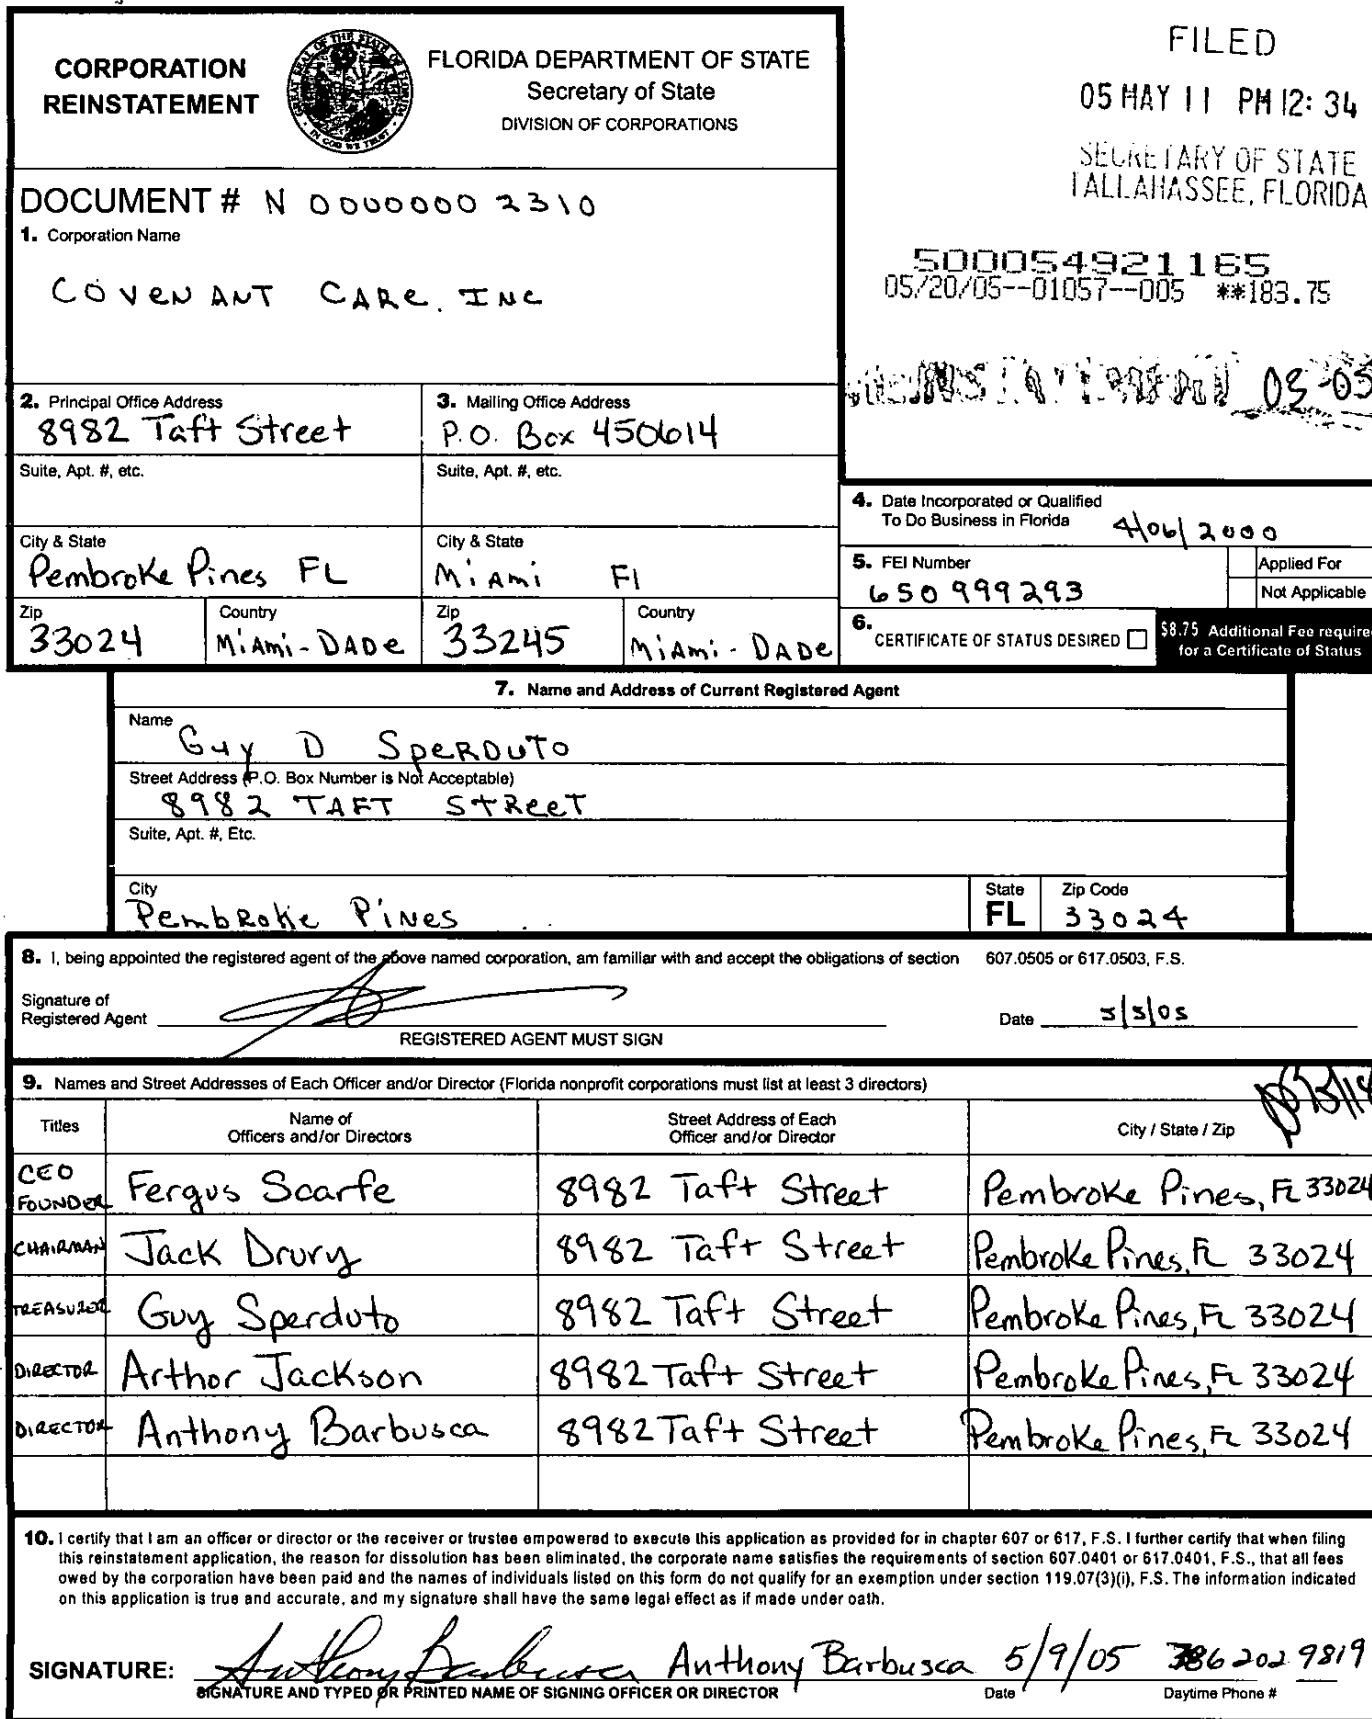 CORPORATION
REINSTATEMENT
GREAT SEAL OF THE STATE OF FLORIDA
IN GOD WE TRUST
FLORIDA DEPARTMENT OF STATE
Secretary of State
DIVISION OF CORPORATIONS
FILED
05 MAY 11 PM 12: 34
SECRETARY OF STATE
TALLAHASSEE, FLORIDA
DOCUMENT # N 0000000 2310
1. Corporation Name
COVENANT CARE. INC
500054921165
05/20/05--01057--005 **183.75
03-05
2. Principal Office Address
8982 Taft Street
3. Mailing Office Address
P.O. Box 450614
Suite, Apt. #, etc.
Suite, Apt. #, etc.
4. Date Incorporated or Qualified
To Do Business in Florida 4/06/2000
City & State
Pembroke Pines FL
City & State
Miami Fl
5. FEI Number
650999293
Applied For
Not Applicable
Zip
33024
Country
Miami-DADe
Zip
33245
Country
Miami-DADe
6. CERTIFICATE OF STATUS DESIRED
$8.75 Additional Fee require
for a Certificate of Status
7. Name and Address of Current Registered Agent
Name
Guy D SPERDUTO
Street Address (P.O. Box Number is Not Acceptable)
8982 TAFT StReeT
Suite, Apt. #, Etc.
City
Pembroke Pines
State
FL
Zip Code
33024
8. I, being appointed the registered agent of the above named corporation, am familiar with and accept the obligations of section 607.0505 or 617.0503, F.S.
Signature of
Registered Agent
Date 5/5/05
REGISTERED AGENT MUST SIGN
9. Names and Street Addresses of Each Officer and/or Director (Florida nonprofit corporations must list at least 3 directors)
Titles
Name of
Officers and/or Directors
Street Address of Each
Officer and/or Director
City / State / Zip
CEO
FOUNDER Fergus Scarfe 8982 Taft Street Pembroke Pines, FL 33024
CHAIRMAN Jack Drury 8982 Taft Street Pembroke Pines, FL 33024
TREASURER Guy Sperduto 8982 Taft Street Pembroke Pines, FL 33024
DIRECTOR Arthor Jackson 8982 Taft Street Pembroke Pines, FL 33024
DIRECTOR Anthony Barbusca 8982 Taft Street Pembroke Pines, FL 33024
10. I certify that I am an officer or director or the receiver or trustee empowered to execute this application as provided for in chapter 607 or 617, F.S. I further certify that when filing
this reinstatement application, the reason for dissolution has been eliminated, the corporate name satisfies the requirements of section 607.0401 or 617.0401, F.S., that all fees
owed by the corporation have been paid and the names of individuals listed on this form do not qualify for an exemption under section 119.07(3)(i), F.S. The information indicated
on this application is true and accurate, and my signature shall have the same legal effect as if made under oath.
SIGNATURE: Anthony Barbusca Anthony Barbusca 5/9/05 386 202 9819
SIGNATURE AND TYPED OR PRINTED NAME OF SIGNING OFFICER OR DIRECTOR Date Daytime Phone #